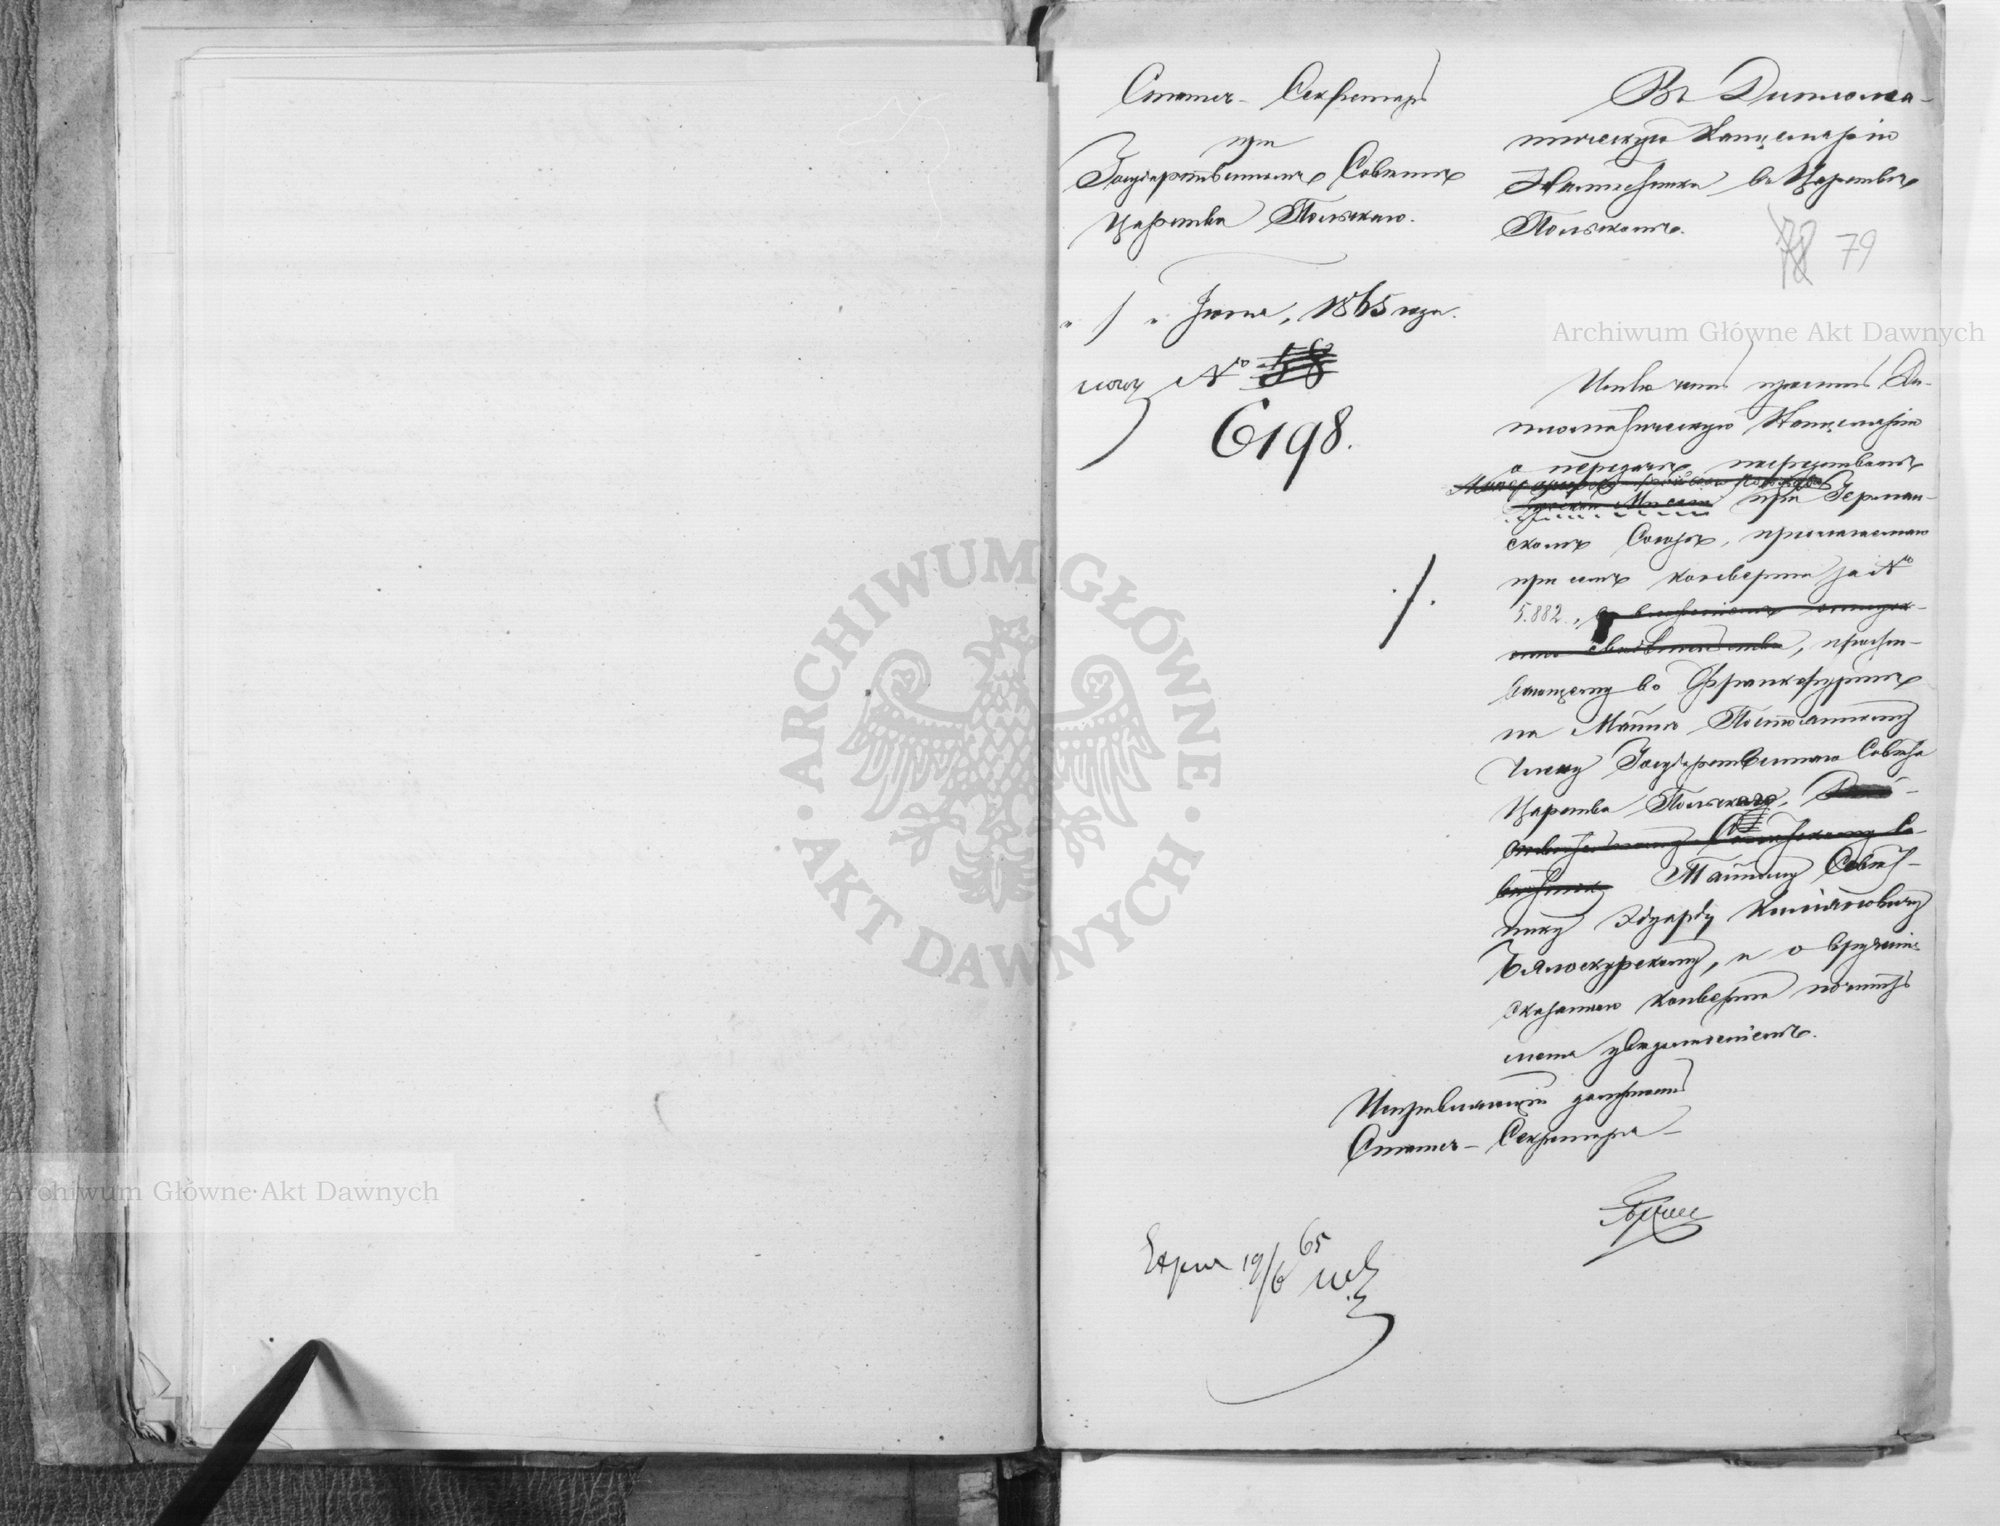 Статсъ-Секретарь
при
Государственномъ Совѣтѣ
Царства Польскаго.
" 1 " Іюня, 1865 года.
№ 58
6198.
Въ Диплома-
тическую Канцелярію
Намѣстника въ Царствѣ
Польскомъ.
78 79
Archiwum Główne Akt Dawnych
Имѣю честь просить Ди-
пломатическую Канцелярію
о передачѣ посредствомъ
Миссіи при Герман-
скомъ Союзѣ, прилагаемаго
при семъ конверта за №
5.882.,
свидѣтельства, прожи-
вающему во Франкфуртѣ
на Майнѣ Постоянному
Члену Государственнаго Совѣта
Царства Польскаго,
Тайному Совѣт-
нику Эдуарду
Бялоскурскому, и о врученіи
сказаннаго конверта почтить
меня увѣдомленіемъ.
Исправляющій должность
Статсъ-Секретаря
19/6 65
ARCHIWUM GŁÓWNE AKT DAWNYCH
Archiwum Główne Akt Dawnych